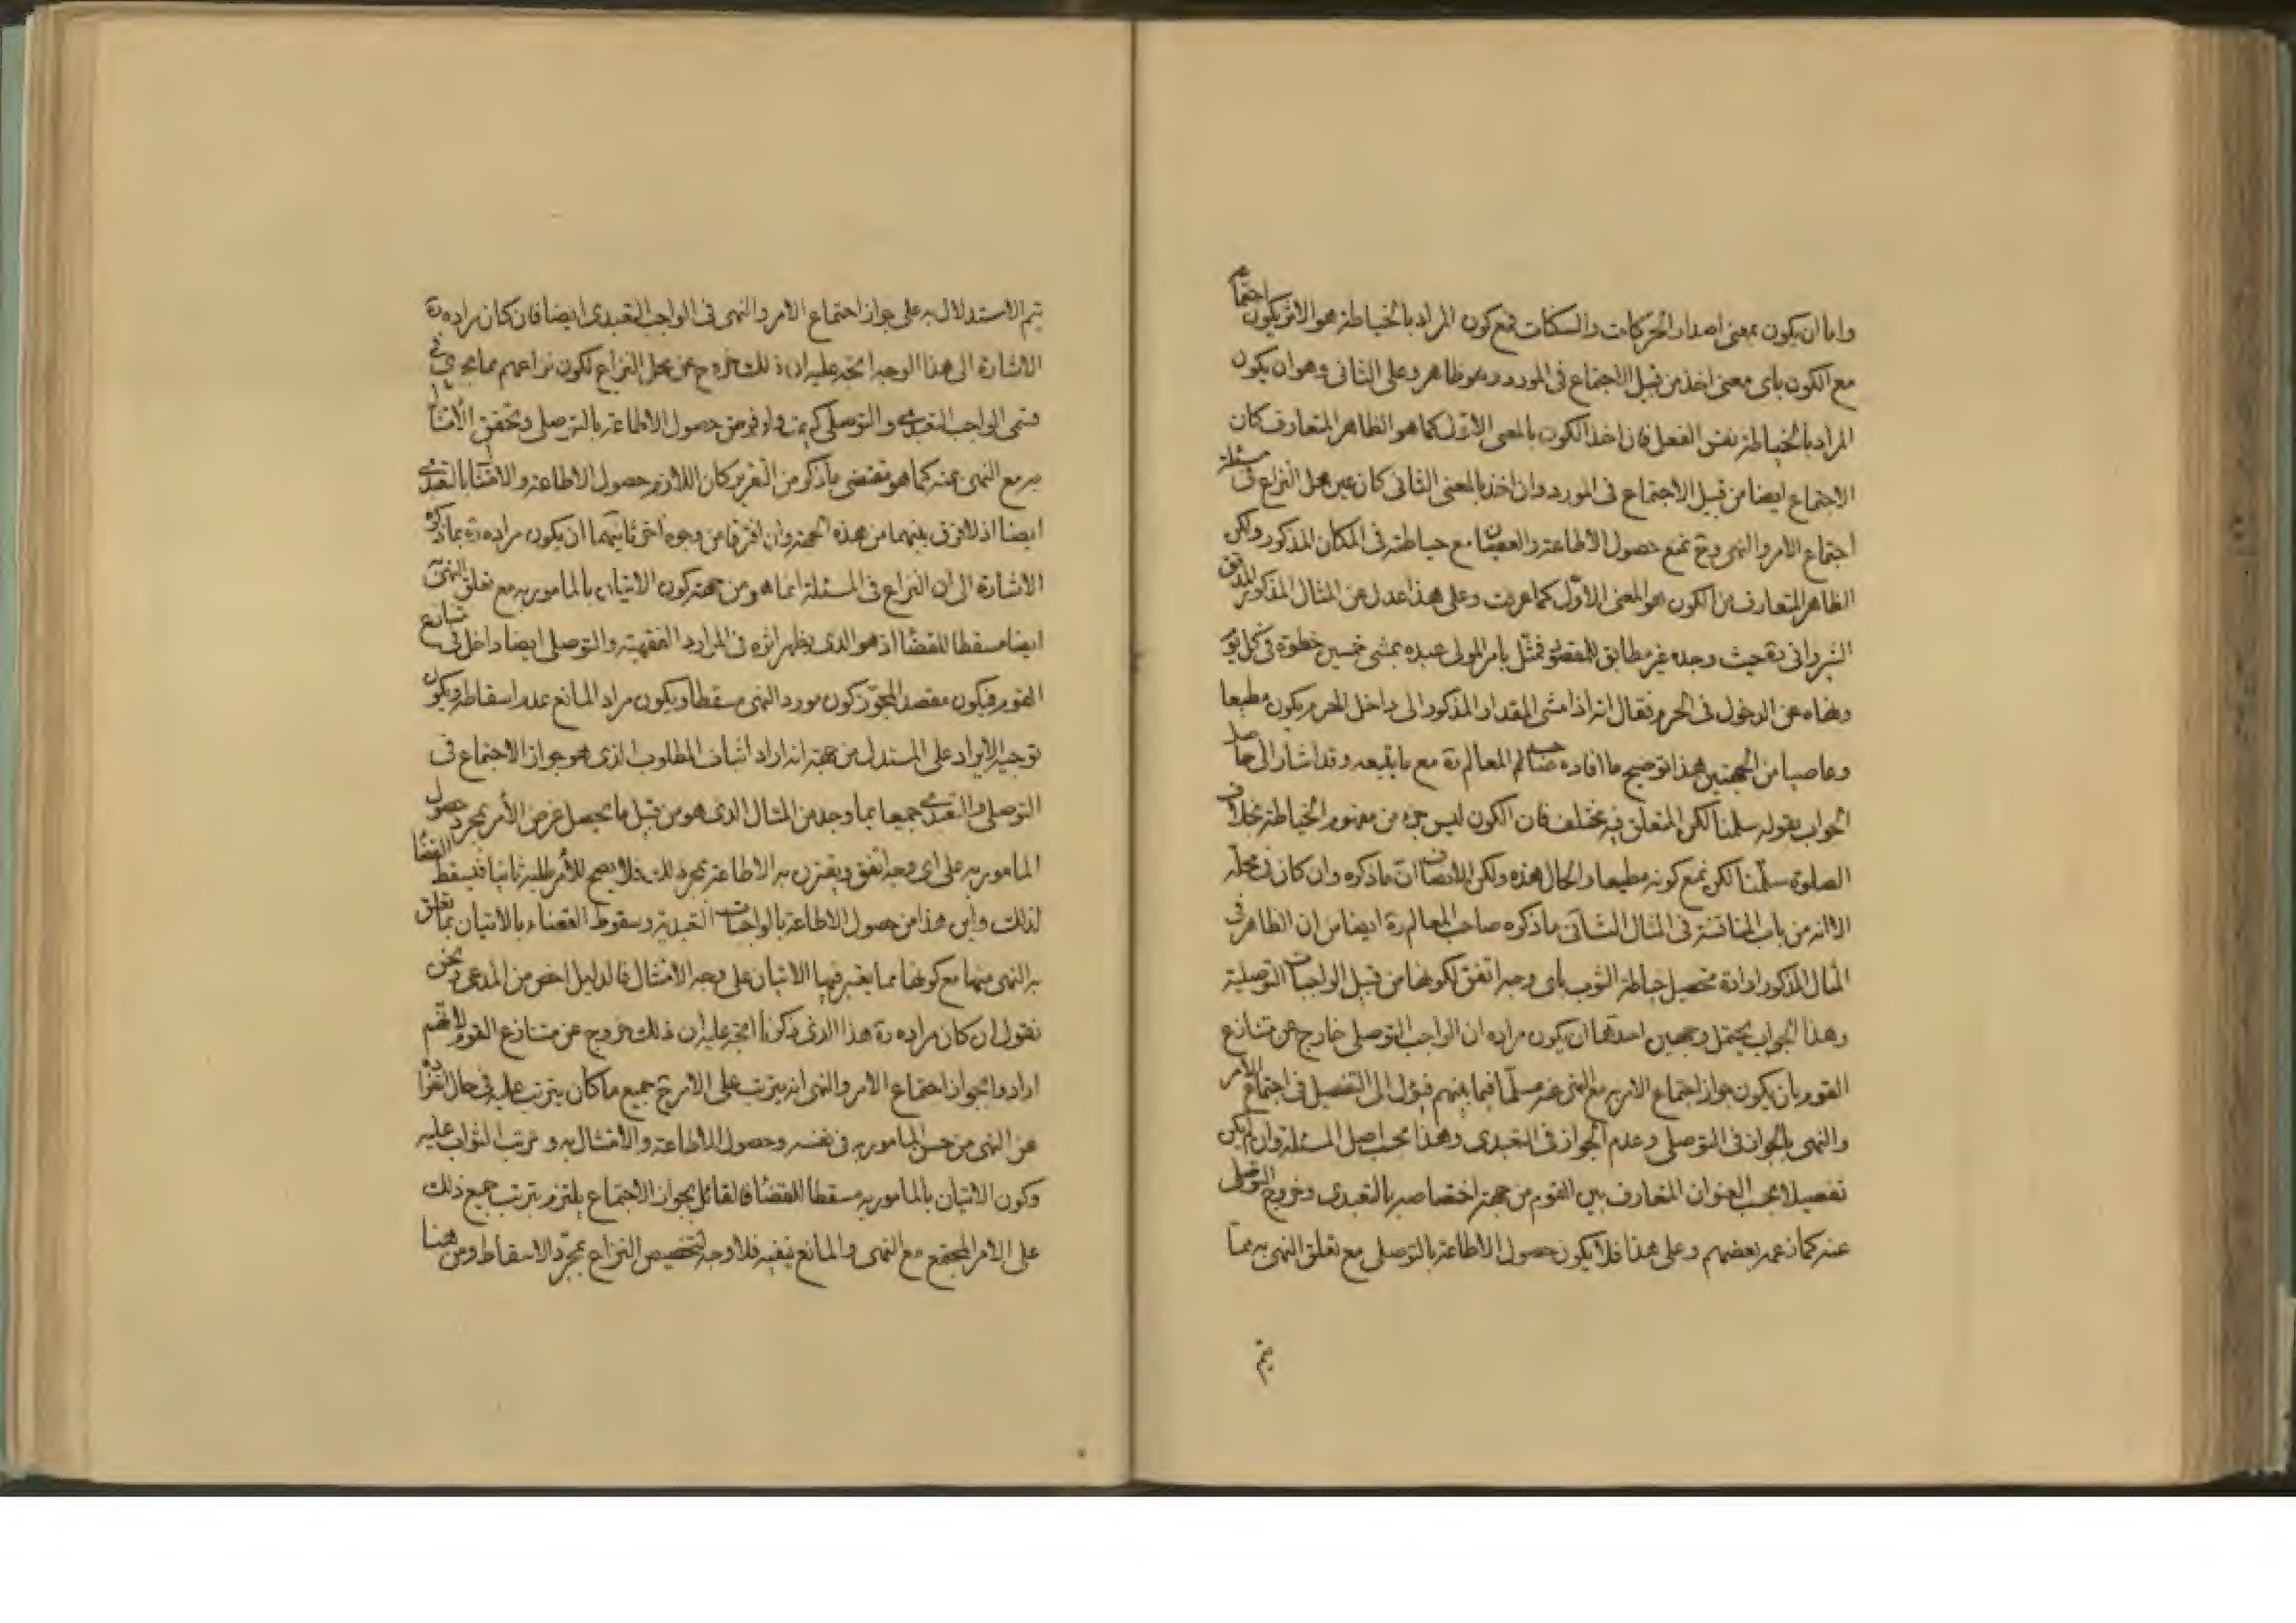 واما ان يكون بمعنى اصدار الحركات والسكنات فمع كون المراد بالخياطة هو الاثر يكون اجتماعه
مع الكون باى معنى اخذ من قبيل الاجتماع فى المورد وهو ظاهر وعلى الثانى وهو ان يكون
المراد بالخياطة نفس الفعل فان اخذ الكون بالمعنى الاول كما هو الظاهر المتعارف كان
الاجتماع ايضا من قبيل الاجتماع فى المورد وان اخذ بالمعنى الثانى كان عين محل النزاع فى مسئلة
اجتماع الامر والنهى وح نمنع حصول الاطاعة والعصيان مع خياطته فى المكان المذكور ولكن
الظاهر المتعارف من الكون هو المعنى الاول كما عرفت وعلى هذا عدل عن المثال المذكور المدقق
الشروانى ره حيث وجده غير مطابق للمقصود فمثل بامر المولى عبده بمشى خمسين خطوة فى كل يوم
ونهاه عن الدخول فى الحرم فقال انه اذا مشى المقدار المذكور الى داخل الحرم يكون مطيعا
وعاصيا من الجهتين هذا توضيح ما افاده صاحب المعالم ره مع ما يتبعه وقد اشار الى حاصل
الجواب بقوله سلمنا لكن المتعلق فيه مختلف فان الكون ليس جزء من مفهوم الخياطة بخلاف
الصلوة سلمنا لكن نمنع كونه مطيعا والحال هذه ولكن الانصاف ان ما ذكره وان كان فى محله
الا انه من باب المناقشة فى المثال الثانى ما ذكره صاحب المعالم ره ايضا من ان الظاهر فى
المثال المذكور ارادة تحصيل خياطة الثوب باى وجه اتفق لكونها من قبيل الواجبات التوصلية
وهذا الجواب يحتمل وجهين احدهما ان يكون مراده ان الواجب التوصلى خارج عن متنازع
القوم بان يكون جواز اجتماع الامر به مع النهى عنه مسلما فيما بينهم فيؤل الى التفصيل فى اجتماع الامر
والنهى بالجواز فى التوصلى وعدم الجواز فى التعبدى وهذا بحسب اصل المسئلة وان لم يكن
تفصيلا بحسب العنوان المتعارف بين القوم من جهة اختصاصه بالتعبدى وخروج التوصلى
عنه كما زعمه بعضهم وعلى هذا فلا يكون حصول الاطاعة بالتوصلى مع تعلق النهى به مما
يتم
يتم الاستدلال به على جواز اجتماع الامر والنهى فى الواجب التعبدى ايضا فان كان مراده ره
الاشارة الى هذا الوجه اتجه عليه ان ذلك خروج عن محل النزاع لكون نزاعهم مما يجرى فى
قسمى الواجب التعبدى والتوصلى كيف ولو فرض حصول الاطاعة بالتوصلى وتحقق الامتثال
به مع النهى عنه كما هو مقتضى ما ذكر من التقرير كان اللازم حصول الاطاعة والامتثال بالتعبدى
ايضا اذ لا فرق بينهما من هذه الجهة وان افترقا من وجوه اخر ثانيهما ان يكون مراده ره بما ذكره
الاشارة الى ان النزاع فى المسئلة انما هو من جهة كون الاتيان بالمامور به مع تعلق النهى
ايضا مسقطا للقضاء اذ هو الذى يظهر اثره فى الموارد الفقهية والتوصلى ايضا داخل فى تنازع
القوم فيكون مقصد المجوز كون مورد النهى مسقطا ويكون مراد المانع عدم اسقاطه ويكون
توجيه الايراد على المستدل من جهة انه اراد اثبات المطلوب الذى هو جواز الاجتماع فى
التوصلى والتعبدى جميعا بما وجد من المثال الذى هو من قبيل ما يحصل غرض الامر بمجرد حصول
المامور به على اى وجه اتفق ويقترن به الاطاعة بمجرد ذلك فلا يصح للامر طلبه ثانيا فيسقط القضاء
لذلك واين هذا من حصول الاطاعة بالواجبات التعبدية وسقوط القضاء بالاتيان بما تعلق
به النهى منها مع كونها مما يعتبر فيها الاتيان على وجه الامتثال فالدليل اخص من المدعى ونحن
نقول ان كان مراده ره هذا الذى ذكرنا اتجه عليه ان ذلك خروج عن متنازع القوم لانهم
ارادوا بجواز اجتماع الامر والنهى انه يترتب على الامر ح جميع ما كان يترتب عليه فى حال انفراده
عن النهى من حسن المامور به فى نفسه وحصول الاطاعة والامتثال به وترتب الثواب عليه
وكون الاتيان بالمامور به مسقطا للقضاء فالقائل بجواز الاجتماع يلتزم بترتب جميع ذلك
على الامر المجتمع مع النهى والمانع ينفيه فلا وجه لتخصيص النزاع بمجرد الاسقاط ومن هنا